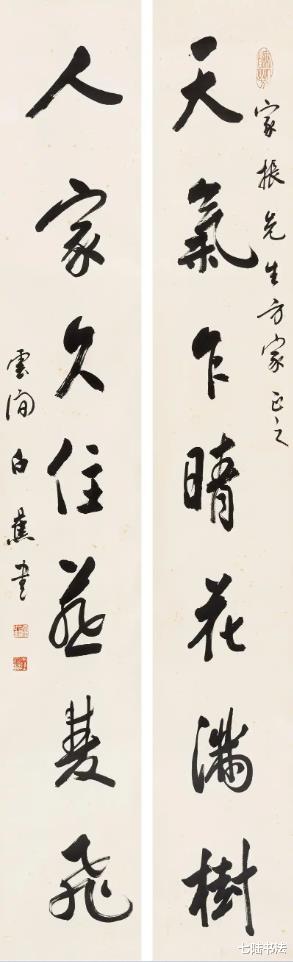 家振先生方家正之
天氣乍晴花滿樹
人家久住燕雙飛
雲間白蕉書
七陆书法